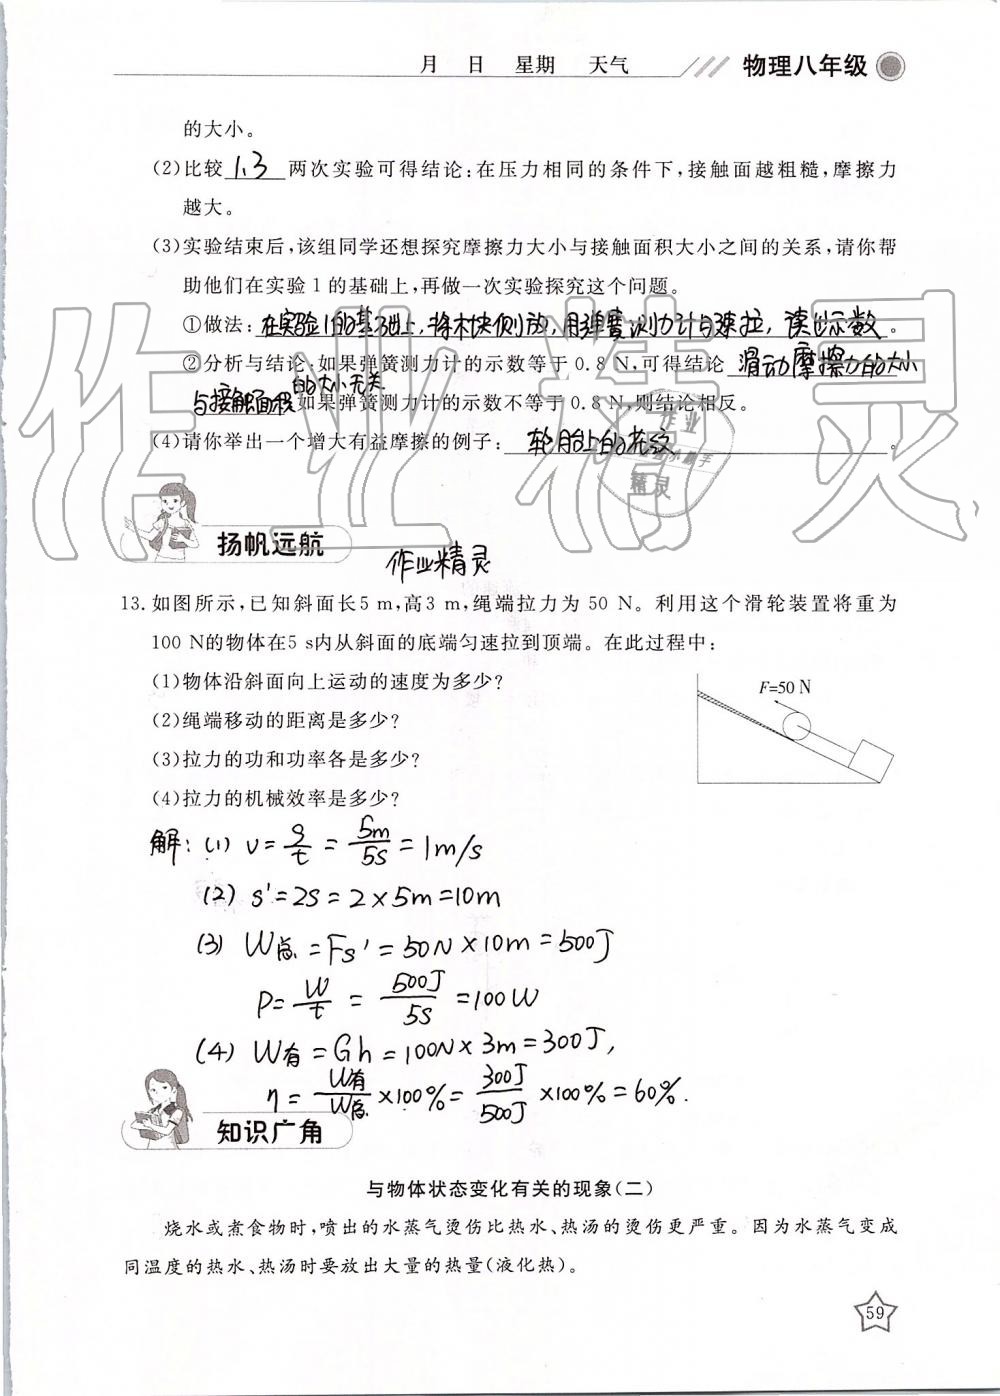 月 日 星期 天气 物理八年级
的大小。
(2)比较 1,3 两次实验可得结论:在压力相同的条件下,接触面越粗糙,摩擦力
越大。
(3)实验结束后,该组同学还想探究摩擦力大小与接触面积大小之间的关系,请你帮
助他们在实验 1 的基础上,再做一次实验探究这个问题。
①做法: 在实验1的基础上,将木块侧放,用弹簧测力计匀速拉,读出示数 。
②分析与结论:如果弹簧测力计的示数等于 0.8 N,可得结论 滑动摩擦力的大小
与接触面积的大小无关 如果弹簧测力计的示数不等于 0.8 N,则结论相反。
(4)请你举出一个增大有益摩擦的例子: 轮胎上的花纹 。
作业精灵
作业
精灵
扬帆远航
作业精灵
13. 如图所示,已知斜面长5 m,高3 m,绳端拉力为 50 N。利用这个滑轮装置将重为
100 N的物体在5 s内从斜面的底端匀速拉到顶端。在此过程中:
(1)物体沿斜面向上运动的速度为多少?
(2)绳端移动的距离是多少?
(3)拉力的功和功率各是多少?
(4)拉力的机械效率是多少?
F=50 N
解: (1) v=s/t=5m/5s=1m/s
(2) s'=2s=2×5m=10m
(3) W总=Fs'=50N×10m=500J
P=W/t=500J/5s=100W
(4) W有=Gh=100N×3m=300J,
η=W有/W总×100%=300J/500J×100%=60%.
知识广角
与物体状态变化有关的现象(二)
烧水或煮食物时,喷出的水蒸气烫伤比热水、热汤的烫伤更严重。因为水蒸气变成
同温度的热水、热汤时要放出大量的热量(液化热)。
59